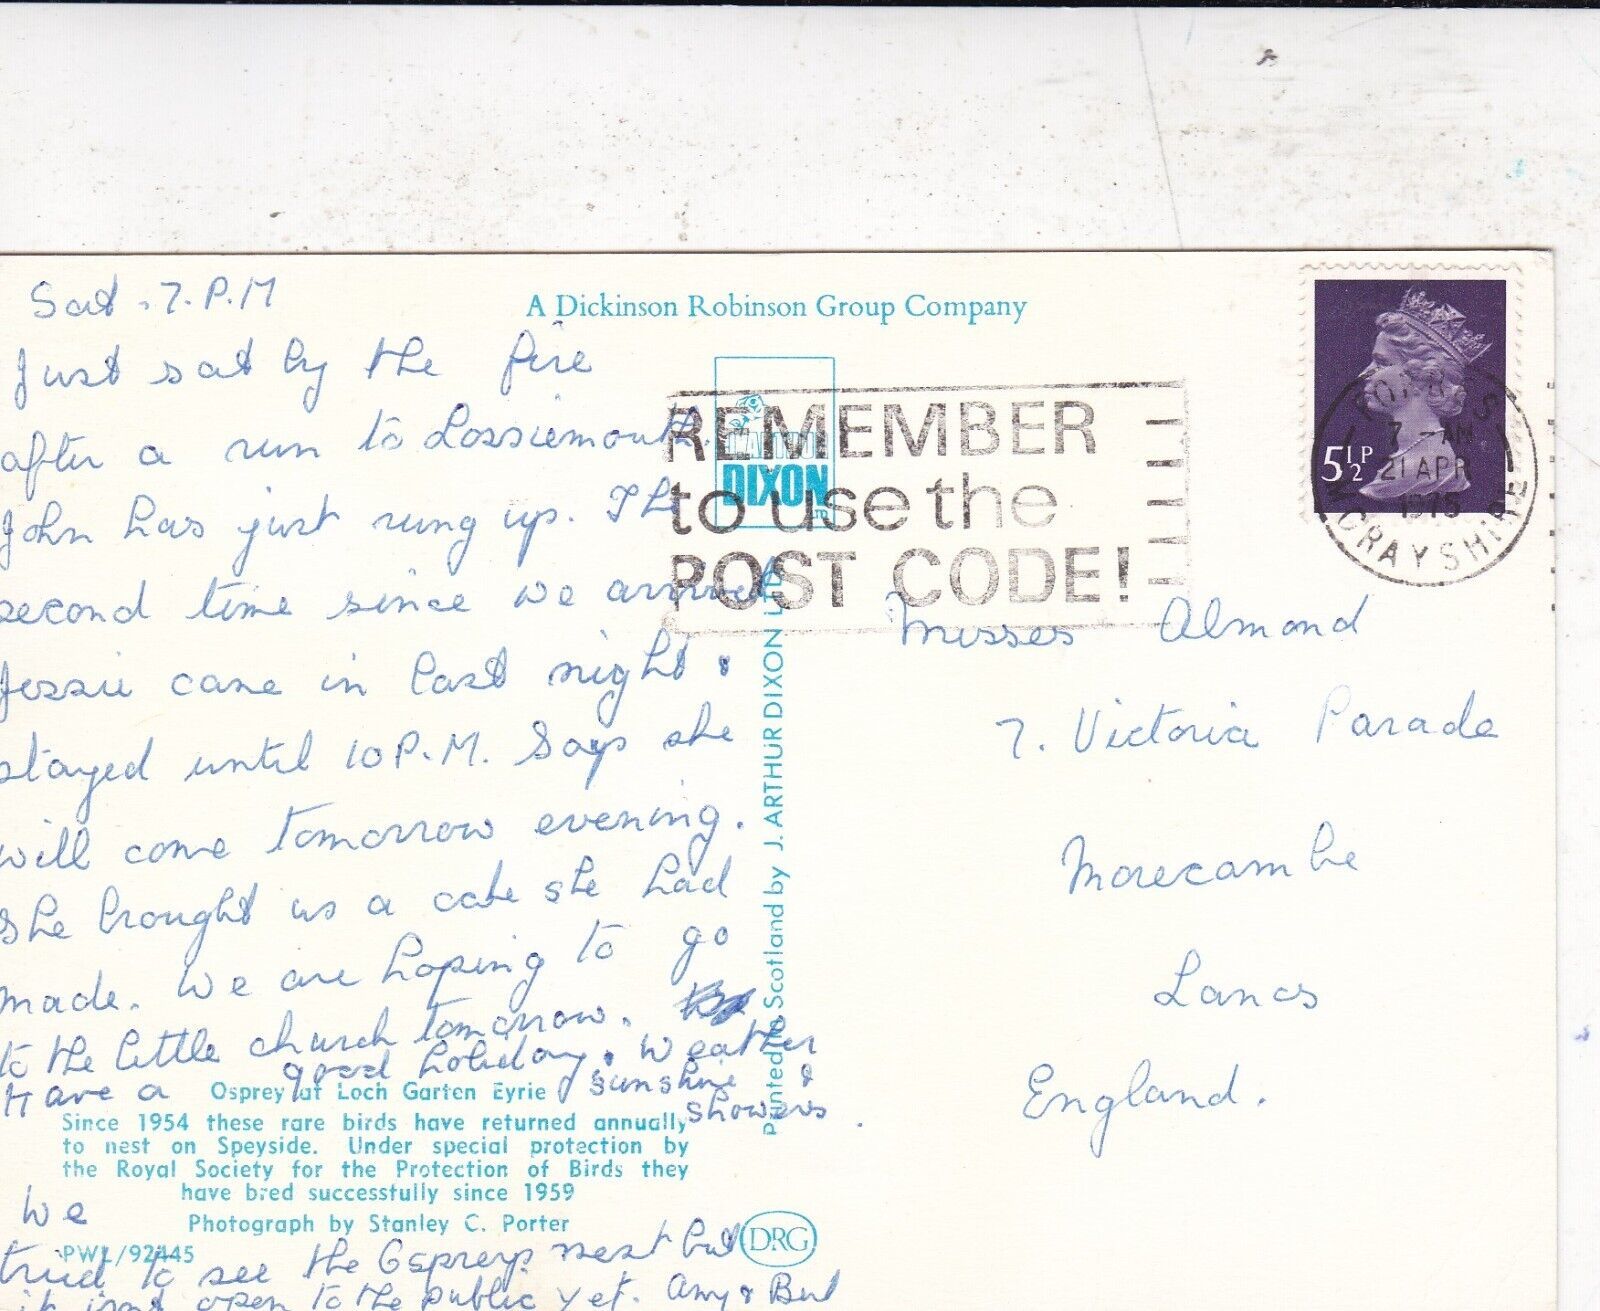 Sat. 7. P.M
Just sat by the fire
after a run to Lossiemouth.
John has just rung up. The
second time since we arrived
Jessie came in last night &
stayed until 10 P.M. Says she
will come tomorrow evening.
She brought us a cake she had
made. We are hoping to go
to the little church tomorrow.
Have a good holiday. Weather
sunshine &
showers.
We
tried to see the Ospreys nest but
it isnt open to the public yet. Amy & Bert
Osprey at Loch Garten Eyrie
Since 1954 these rare birds have returned annually
to nest on Speyside. Under special protection by
the Royal Society for the Protection of Birds they
have bred successfully since 1959
Photograph by Stanley C. Porter
PWL/92445
A Dickinson Robinson Group Company
DIXON
LTD
Printed in Scotland by J. ARTHUR DIXON LTD
DRG
REMEMBER
to use the
POST CODE!
5½P
FORRES
7 - AM
21 APR
1975
MORAYSHIRE
Misses Almond
7. Victoria Parade
Morecambe
Lancs
England.